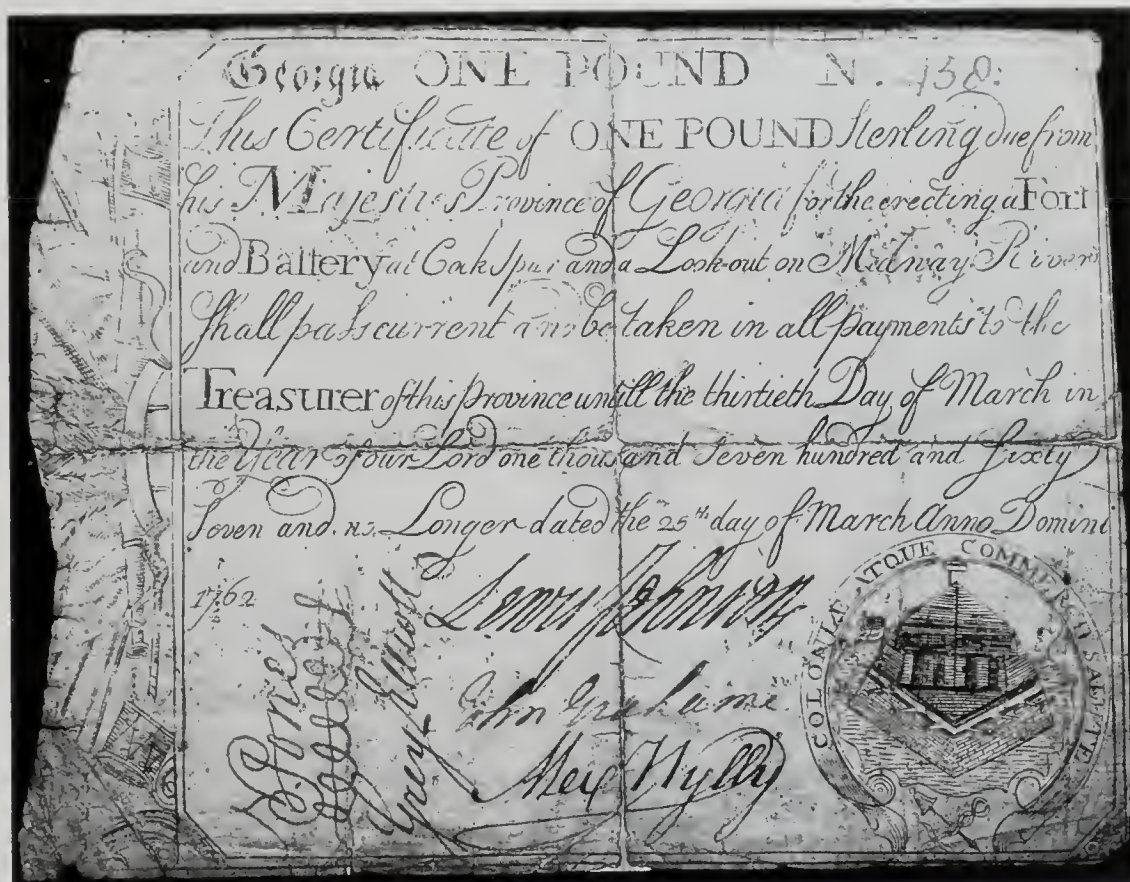 Georgia ONE POUND N. 158.
This Certificate of ONE POUND Sterling due from
his Majesties Province of Georgia for the erecting a Fort
and Battery at Cokspur and a Look-out on Midway River
Shall pass current and be taken in all payments to the
Treasurer of this province untill the thirtieth Day of March in
the Year of our Lord one thousand Seven hundred and Sixty
Seven and no Longer dated the 25th day of March Anno Domini
1762
Lewis Johnson
John Grahame
Alex Wylly
Grey Elliott
N Jones
COLONIÆ ATQUE COMMERCII SALUTE